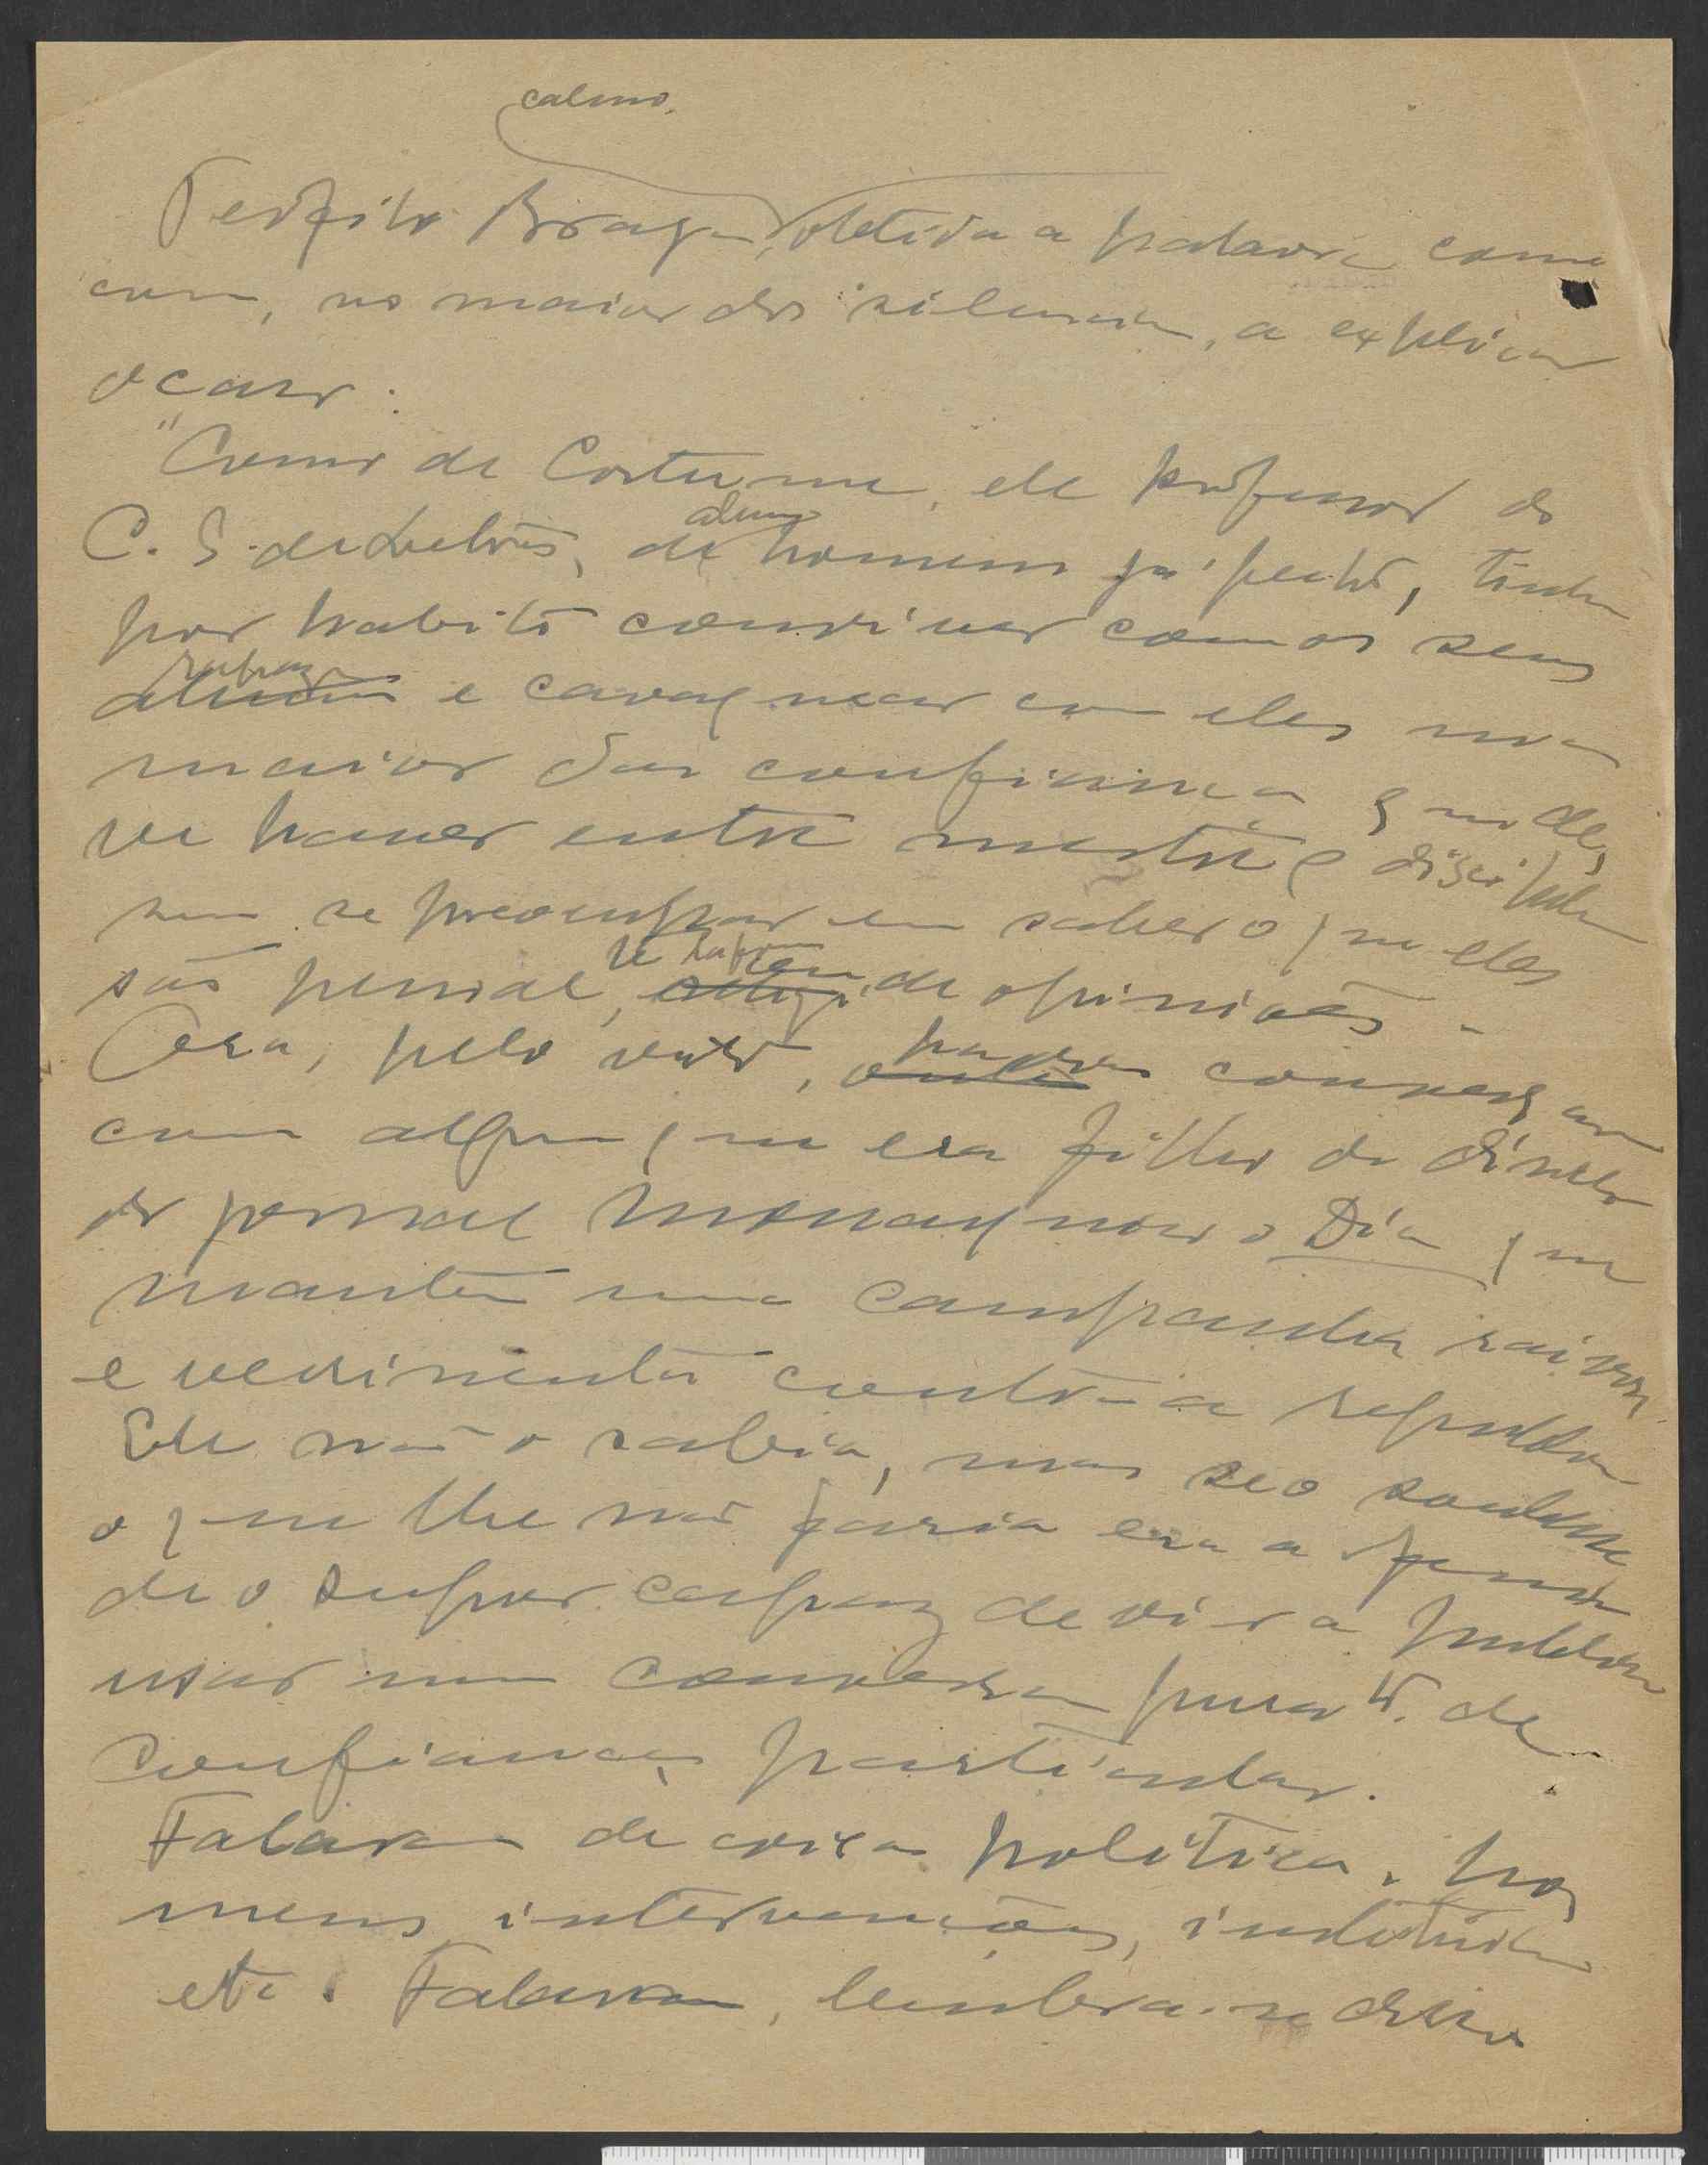 calmo,
Teofilo Braga, obtida a palavra come
çou, no maior dos silencios, a explicar
o caso:
"Como de costume, ele professor do
C. S. de Letras, de alunos homens já feitos, tinha
por habito conviver com os seus
alunos rapazes e cavaquear com eles na
maior das confianças que de
ve haver entre mestre e discipulos
sem se preocupar em saber o que eles
são pensae, de opiniões.
Ora, pelo visto, conversara
com algum que era filho do director
do jornal monarquico o Dia que
mantem uma campanha raivosa
e verrinenta contra a republica
Ele não o sabia, mas se o soubesse
o que lhe não faria era a
de o supor capaz de vir a publico
usar uma conversa puramte. de
confiança, particular.
Falaram de coisas politicas, ho
mens, intervenções, instituições
etc. Falaram, lembra-se disso